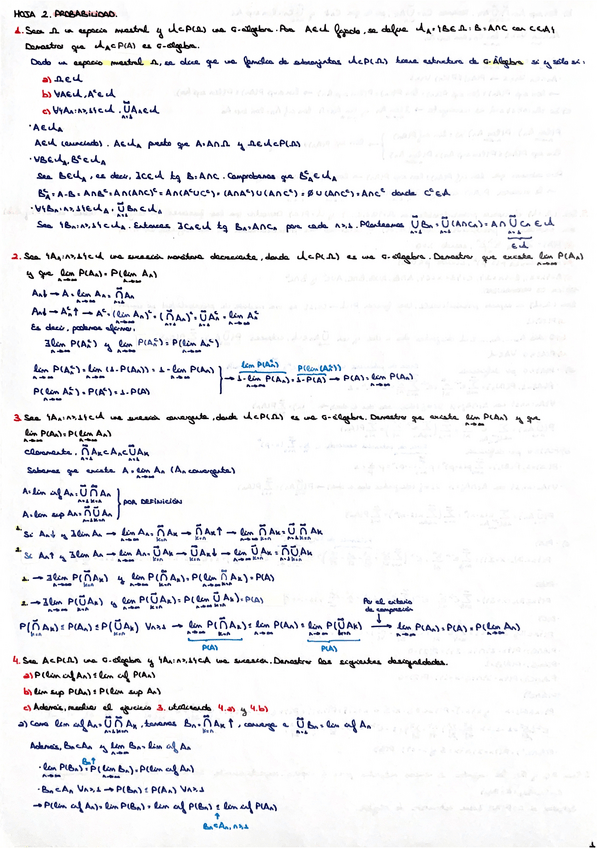 HOJA 2. PROBABILIDAD.
1. Sean Ω un espacio muestral y A⊂P(Ω) una σ-álgebra. Para A∈A fijado, se define A_A: {B∈Ω: B=A∩C con C∈A}
Demostrar que A_A⊂P(A) es σ-álgebra.
Dado un espacio muestral Ω, se dice que una familia de subconjuntos A⊂P(Ω) tiene estructura de σ-Álgebra si y sólo si:
a) Ω∈A
b) ∀A∈A, A^c∈A
c) ∀{An: n≥1}⊂A, ∪An∈A
· A∈A_A
A∈A (enunciado). A∈A_A puesto que A=A∩Ω y Ω∈A⊂P(Ω)
· ∀B∈A_A, B^c∈A_A
Sea B∈A_A, es decir, ∃C∈A tq B=A∩C. Comprobamos que B^c_A∈A_A
B^c_A=A-B=A∩B^c=A∩(A∩C)^c=A∩(A^c∪C^c)=(A∩A^c)∪(A∩C^c)=∅∪(A∩C^c)=A∩C^c donde C^c∈A
· ∀{Bn: n≥1}∈A_A, ∪Bn∈A_A
Sea {Bn: n≥1}⊂A_A. Entonces ∃Cn∈A tq Bn=A∩Cn para cada n≥1. Planteamos ∪Bn=∪(A∩Cn)=A∩∪Cn∈A
∈A
2. Sea {An: n≥1}⊂A una sucesión monótona decreciente, donde A⊂P(Ω) es una σ-álgebra. Demostrar que existe lim P(An)
y que lim P(An)=P(lim An)
An↓→A=lim An=∩An
An↓→An^c↑→A^c=(lim An)^c=(∩An)^c=∪An^c=lim An^c
Es decir, podemos afirmar:
∃lim P(An^c) y lim P(An^c)=P(lim An^c)
lim P(An^c)=lim (1-P(An))=1-lim P(An)
P(lim An^c)=P(A^c)=1-P(A)
lim P(An^c) P(lim(An^c))
→1-lim P(An)=1-P(A)→P(A)=lim P(An)
3. Sea {An: n≥1}⊂A una sucesión convergente, donde A⊂P(Ω) es una σ-álgebra. Demostrar que existe lim P(An) y que
lim P(An)=P(lim An)
Claramente, ∩Ak⊂An⊂∪Ak
Sabemos que existe A=lim An (An convergente)
A=lim inf An=∪∩Ak
A=lim sup An=∩∪Ak
POR DEFINICIÓN
1. Si An↓ y ∃lim An→lim An=∩Ak→∩Ak↑→lim ∩Ak=∪∩Ak
2. Si An↑ y ∃lim An→lim An=∪Ak→∪Ak↓→lim ∪Ak=∩∪Ak
1→∃lim P(∩Ak) y lim P(∩Ak)=P(lim ∩Ak)=P(A)
2→∃lim P(∪Ak) y lim P(∪Ak)=P(lim ∪Ak)=P(A)
Por el criterio
de comparación
P(∩Ak)≤P(An)≤P(∪Ak) ∀n≥1→lim P(∩Ak)≤lim P(An)≤lim P(∪Ak)→lim P(An)=P(A)=P(lim An)
P(A) P(A)
4. Sea A⊂P(Ω) una σ-álgebra y {An: n≥1}⊂A una sucesión. Demostrar las siguientes desigualdades.
a) P(lim inf An)≤lim inf P(An)
b) lim sup P(An)≤P(lim sup An)
c) Además, resolver el ejercicio 3. utilizando 4.a) y 4.b)
a) Como lim inf An=∪∩Ak, tenemos Bn=∩Ak↑, converge a ∪Bn=lim inf An
Además, Bn⊂An y lim Bn=lim inf An
Bn↑
· lim P(Bn)=P(lim Bn)=P(lim inf An)
· Bn⊂An ∀n≥1→P(Bn)≤P(An) ∀n≥1
→P(lim inf An)=lim P(Bn)=lim inf P(Bn)≤lim inf P(An)
Bn⊂An, n≥1
1